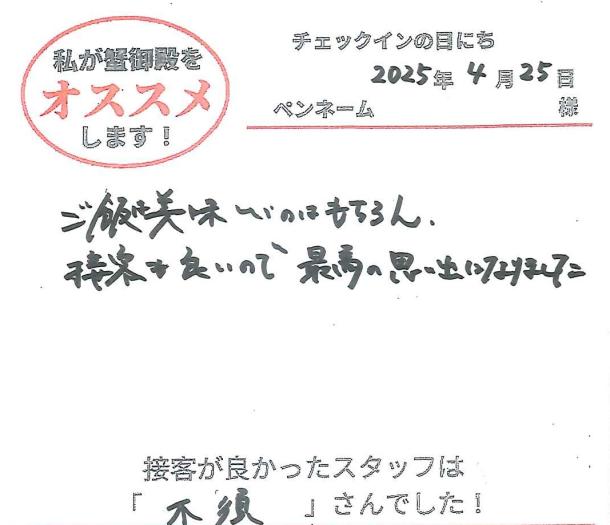 私が蟹御殿を
オススメ
します!
チェックインの日にち
2025年 4月25日
ペンネーム 様
ご飯も美味しいのはもちろん、
接客も良いので 最高の思い出になりました
接客が良かったスタッフは
「 不須 」さんでした!